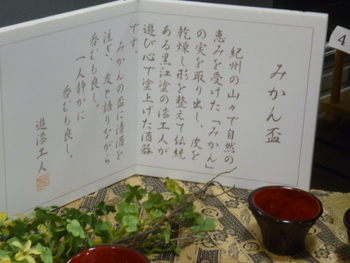 みかん盃
紀州の山々で自然の
恵みを受けた「みかん」
の実を取り出し、皮を
乾燥し形を整えて伝統
ある黒江堂の漆工人が
遊び心で塗上げた酒器
です。
みかんの盃に清酒を
注ぎ、友と語りながら
呑むも良し、
一人静かに
呑むも良し。
遊漆工人
4